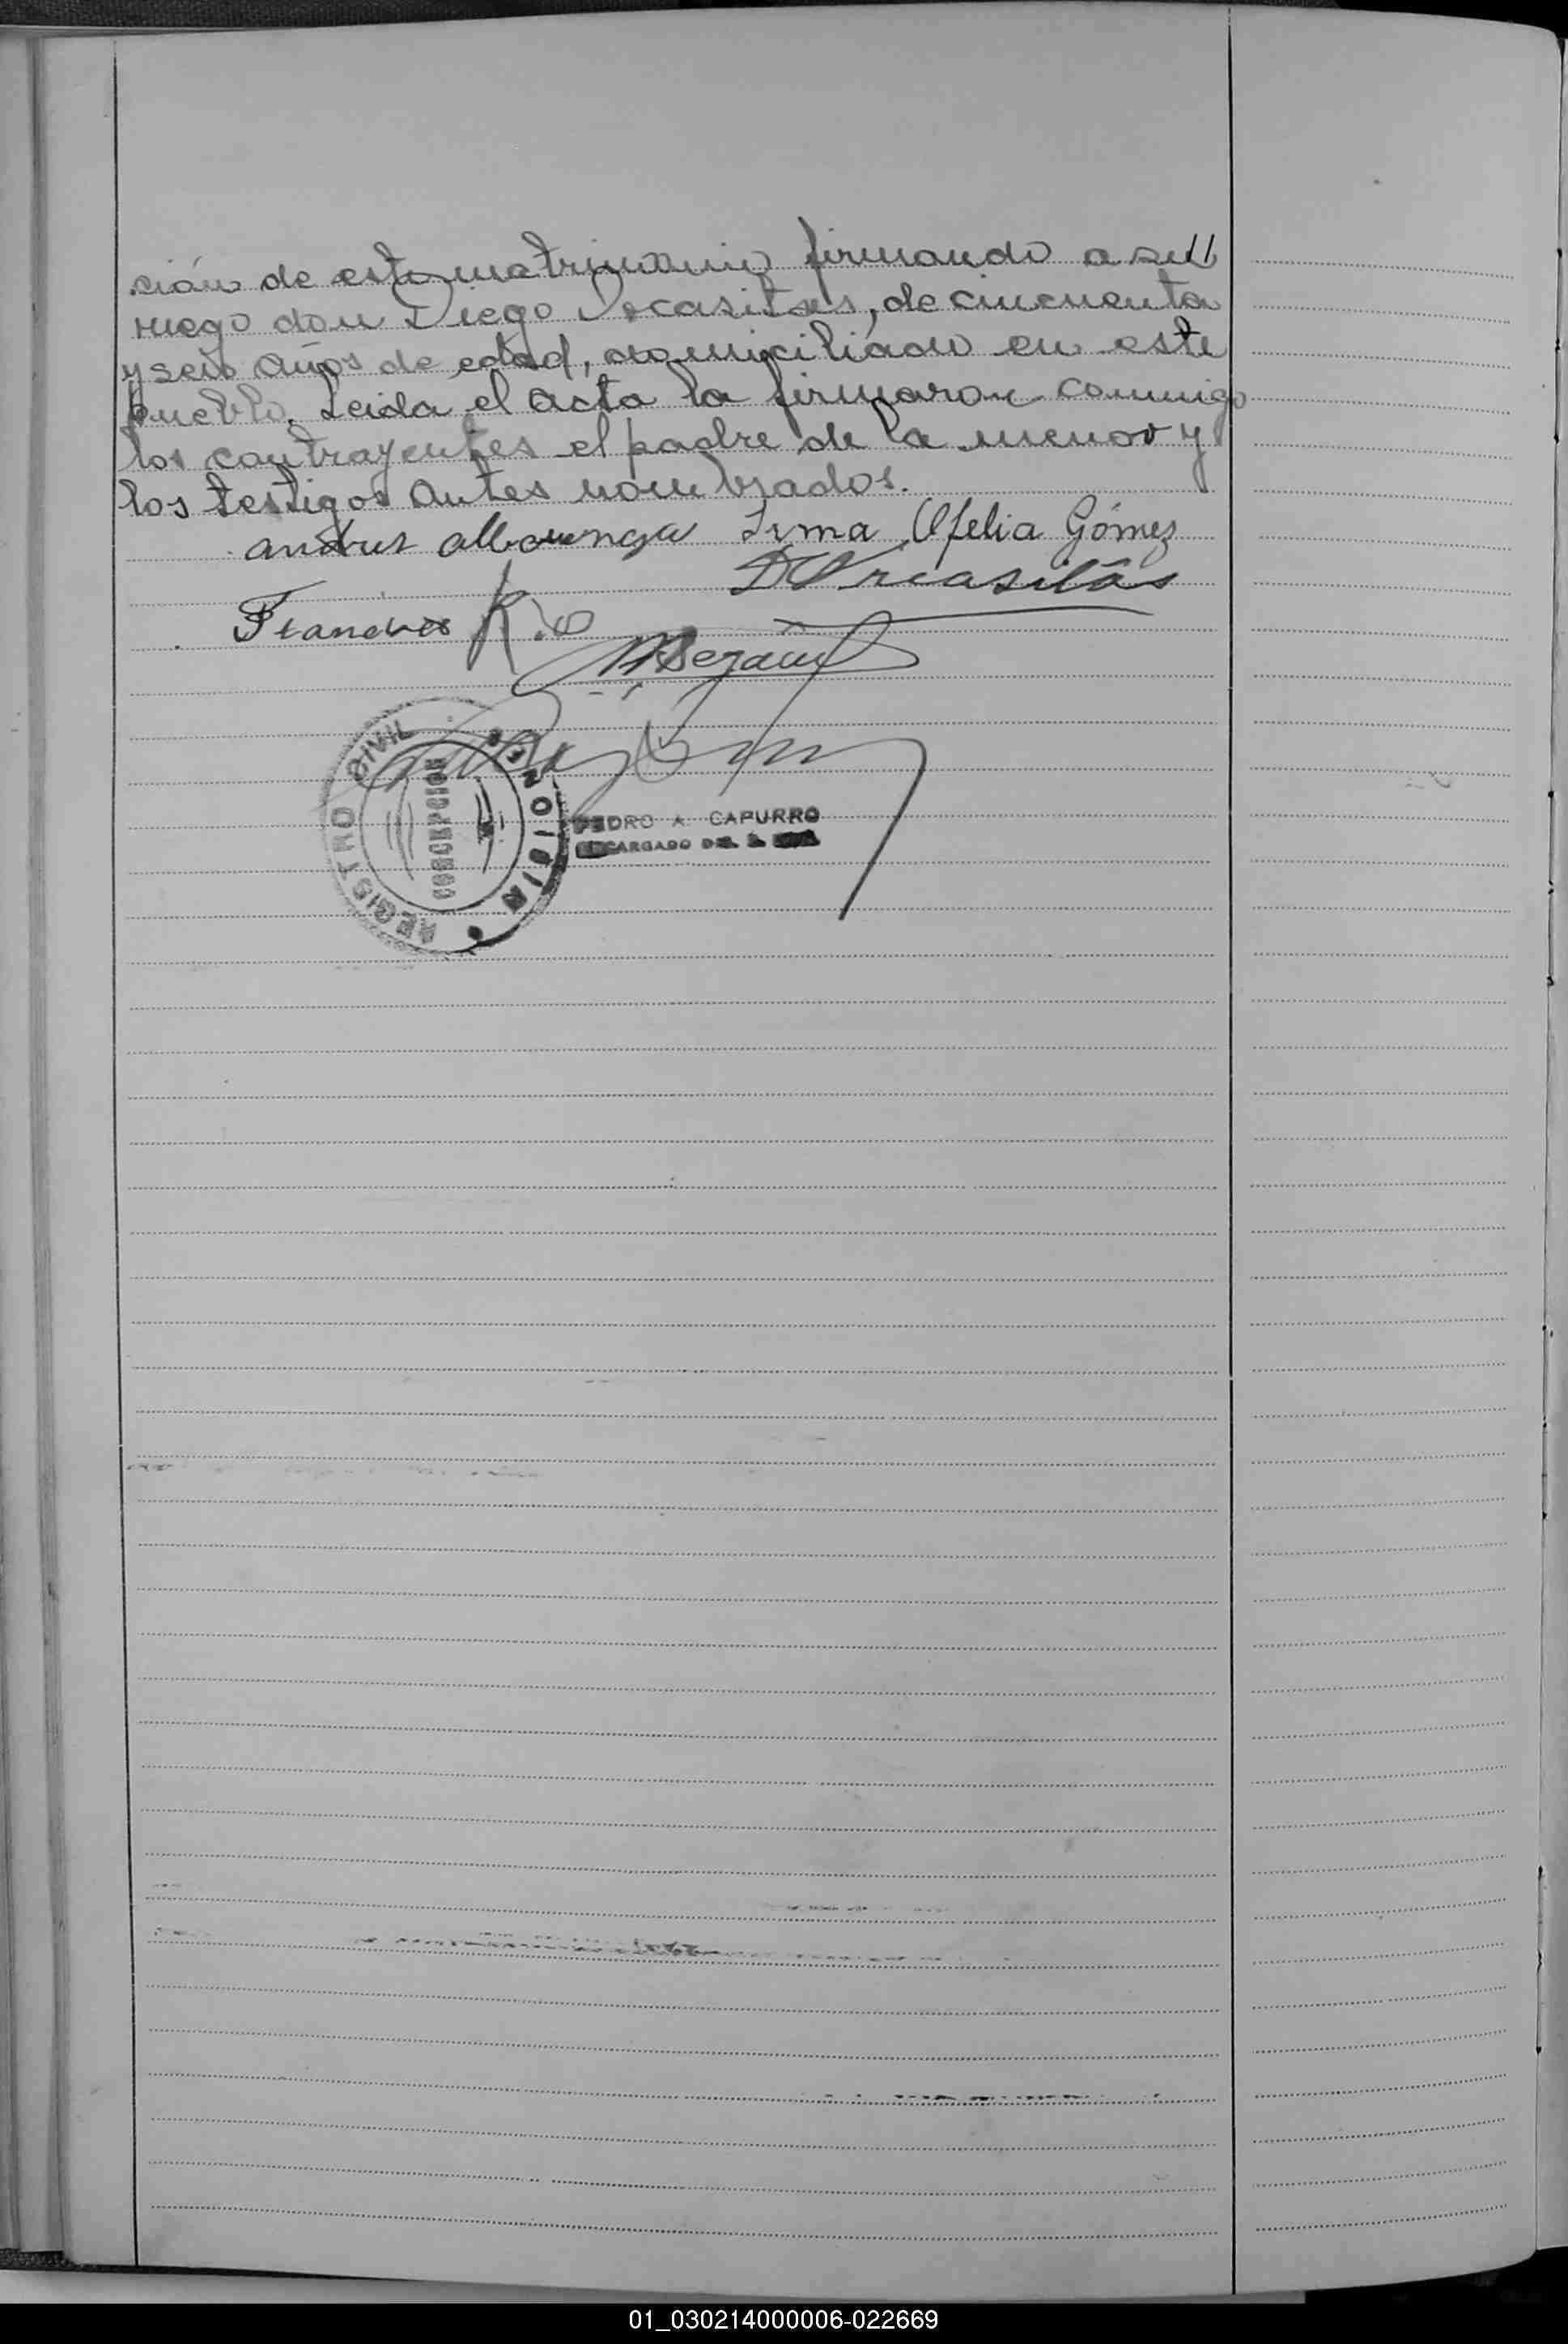 ción de este matrimonio firmando a su//
ruego don Diego Urcasitas, de cincuenta
y seis años de edad, domiciliado en este
pueblo. Leida el acta la firmaron conmigo
los contrayentes el padre de la menor y
los testigos antes nombrados.
Irma Ofelia Gómez
D Urcasitas
REGISTRO CIVIL
CONCEPCION
PEDRO A. CAPURRO
ENCARGADO DEL R. CIVIL
01_030214000006-022669